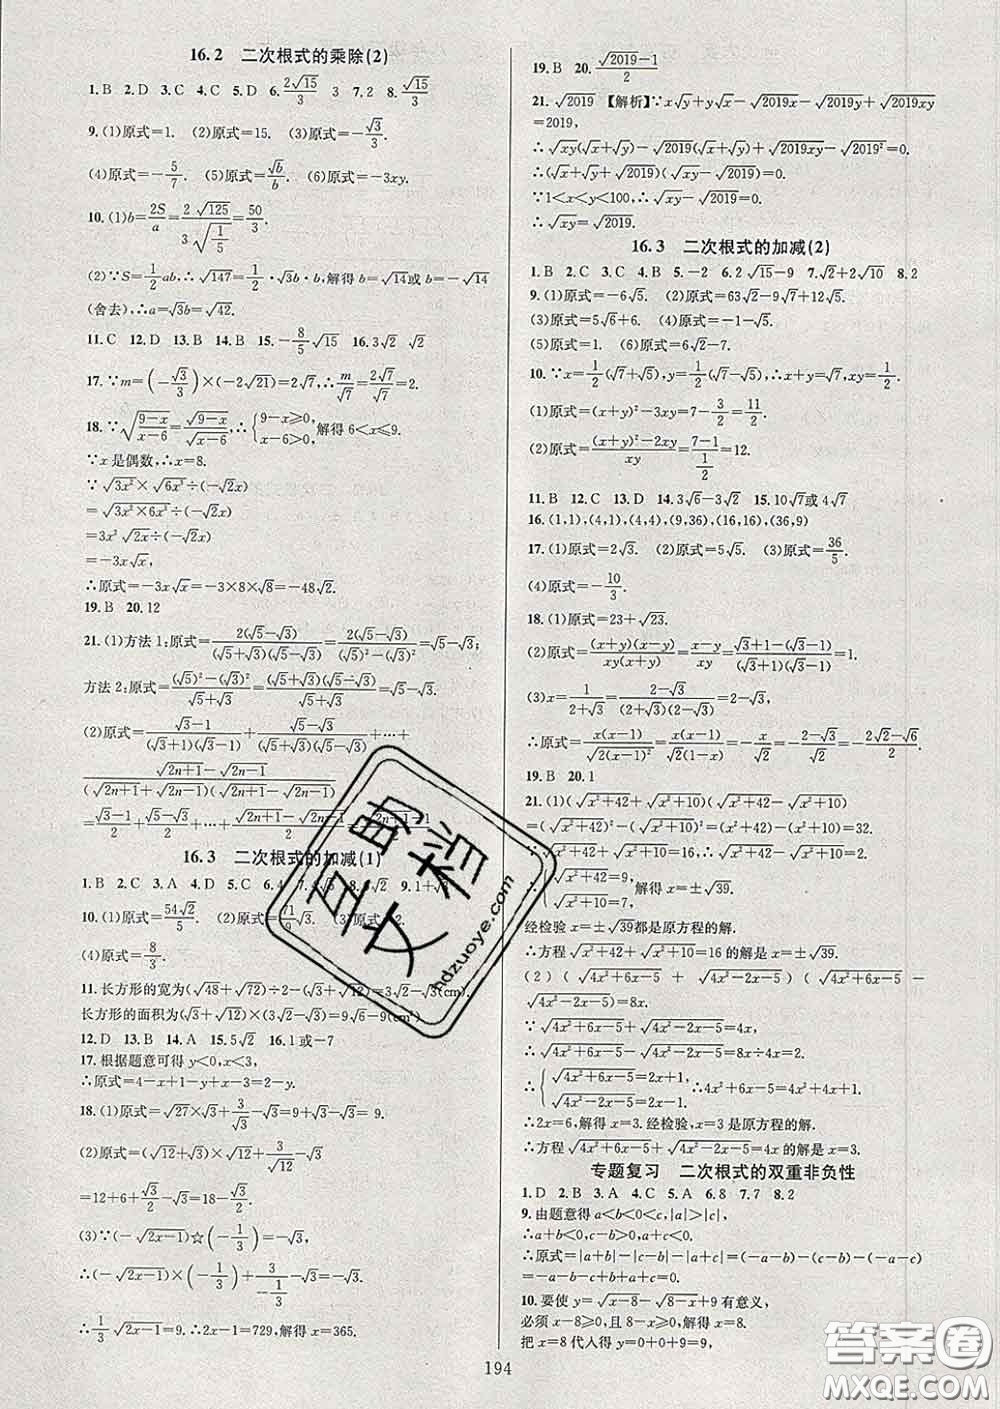 16.2 二次根式的乘除(2)
1.B 2.D 3.C 4.C 5.D 6.2√15/3 3 7.2 8.√15/3
9.(1)原式=1. (2)原式=15. (3)原式=-√3/3.
(4)原式=-5/7. (5)原式=√b/b. (6)原式=-3xy.
10.(1)b=2S/a=2√125/(3√(1/5))=50/3.
(2)∵S=1/2ab,∴√147=1/2·√3b·b,解得b=√14或b=-√14
(舍去),∴a=√3b=√42.
11.C 12.D 13.B 14.B 15.-8/5√15 16.3√2 √2
17.∵m=(-√3/3)×(-2√21)=2√7,∴m/√7=2√7/√7=2.
18.∵√((9-x)/(x-6))=√(9-x)/√(x-6),∴{9-x≥0,x-6>0,解得6<x≤9.
∵x是偶数,∴x=8.
∵√(3x²)×√(6x³)÷(-√2x)
=√(3x²×6x³)÷(-√2x)
=3x²√(2x)÷(-√2x)
=-3x√x,
∴原式=-3x√x=-3×8×√8=-48√2.
19.B 20.12
21.(1)方法1:原式=2(√5-√3)/((√5+√3)(√5-√3))=2(√5-√3)/((√5)²-(√3)²)=√5-√3.
方法2:原式=((√5)²-(√3)²)/(√5+√3)=(√5+√3)(√5-√3)/(√5+√3)=√5-√3.
(2)原式=(√3-1)/((√3+1)(√3-1))+(√5-√3)/((√5+√3)(√5-√3))+⋯+
(√(2n+1)-√(2n-1))/((√(2n+1)+√(2n-1))(√(2n+1)-√(2n-1)))
=(√3-1)/2+(√5-√3)/2+⋯+(√(2n+1)-√(2n-1))/2=(√(2n+1)-1)/2
16.3 二次根式的加减(1)
1.B 2.C 3.A 4.D 5.C 6.4 7.5√3 8.√2 9.1+√3
10.(1)原式=54√2/5. (2)原式=71/9√3. (3)原式=2.
(4)原式=8/3.
11.长方形的宽为(√48+√72)÷2-(√3+√12)=3√2-√3(cm).
长方形的面积为(√3+√12)×(3√2-√3)=9√6-9(cm²).
12.D 13.B 14.A 15.5√2 16.1或-7
17.根据题意可得y<0,x<3,
∴原式=4-x+1-y+x-3=2-y.
18.(1)原式=√27×√3+3/√3-√3=9+√3-√3=9.
(2)原式=√3(√3+√12)+√12×√3+3/√12-1/2√3
=12+6+√3/2-√3/2=18.
(3)∵(-√(2x-1))☆(-1/3)=-√3,
∴(-√(2x-1))×(-1/3)+3/(-1/3)-√3=-√3,
∴1/3√(2x-1)=9,∴2x-1=729,解得x=365.
19.B 20.(√2019-1)/2
21.√2019 【解析】∵x√y+y√x-√2019x-√2019y+√2019xy
=2019,
∴√xy(√x+√y)-√2019(√x+√y)+√2019xy-√2019²=0.
∴(√x+√y+√2019)(√xy-√2019)=0.
∵1<x<y<100,∴√x+√y+√2019≠0.
∴√xy-√2019=0.
∴√xy=√2019.
16.3 二次根式的加减(2)
1.B 2.C 3.C 4.B 5.-2 6.2√15-9 7.√2+2√10 8.2
9.(1)原式=-6√5. (2)原式=63√2-9√3.
(3)原式=5√6+6. (4)原式=-1-√5.
(5)原式=1. (6)原式=6√2-7.
10.∵x=1/2(√7+√5),y=1/2(√7-√5),∴x+y=√7,xy=1/2.
(1)原式=(x+y)²-3xy=7-3/2=11/2.
(2)原式=((x+y)²-2xy)/xy=(7-1)/(1/2)=12.
11.B 12.C 13.D 14.3√6-3√2 15.10√7或4√7
16.(1,1),(4,1),(4,4),(9,36),(16,16),(36,9)
17.(1)原式=2√3. (2)原式=5√5. (3)原式=36/5.
(4)原式=-10/3.
18.(1)原式=23+√23.
(2)原式=(x+y)(x-y)/(xy(x+y))=(x-y)/xy=(√3+1-(√3-1))/((√3+1)(√3-1))=1.
(3)x=1/(2+√3)=(2-√3)/1=2-√3,
∴原式=x(x-1)/√(2(x-1)²)=x(x-1)/(√2(1-x))=-x/√2=-(2-√3)/√2=-(2√2-√6)/2.
19.B 20.1
21.(1)(√(x²+42)+√(x²+10))(√(x²+42)-√(x²+10))
=(√(x²+42))²-(√(x²+10))²=(x²+42)-(x²+10)=32.
∵√(x²+42)+√(x²+10)=16,∴√(x²+42)-√(x²+10)=32÷16=2.
∴{√(x²+42)=9,√(x²+10)=7,解得x=±√39.
经检验x=±√39都是原方程的解.
∴方程√(x²+42)+√(x²+10)=16的解是x=±√39.
(2)(√(4x²+6x-5)+√(4x²-2x-5))(√(4x²+6x-5)
-√(4x²-2x-5))=8x.
∵√(4x²+6x-5)+√(4x²-2x-5)=4x,
∴√(4x²+6x-5)-√(4x²-2x-5)=8x÷4x=2.
∴{√(4x²+6x-5)=2x+1,√(4x²-2x-5)=2x-1,∴4x²+6x-5=4x²+4x+1.
∴2x=6,解得x=3.经检验,x=3是原方程的解.
∴方程√(4x²+6x-5)+√(4x²-2x-5)=4x的解是x=3.
专题复习 二次根式的双重非负性
1.D 2.B 3.A 4.C 5.A 6.8 7.7 8.2
9.由题意得a<b<0<c,|a|>|c|,
∴a+b<0,c-b>0,a+c<0,
∴原式=|a+b|-|c-b|-|a+c|=(-a-b)-(c-b)-(-a-c)
=-a-b-c+b+a+c=0.
10.要使y=√(x-8)-√(8-x)+9有意义,
必须x-8≥0,且8-x≥0,解得x=8.
把x=8代入得y=0+0+9=9,
194
互助文档
hdzuoye.com
答案圈
MXQE.COM